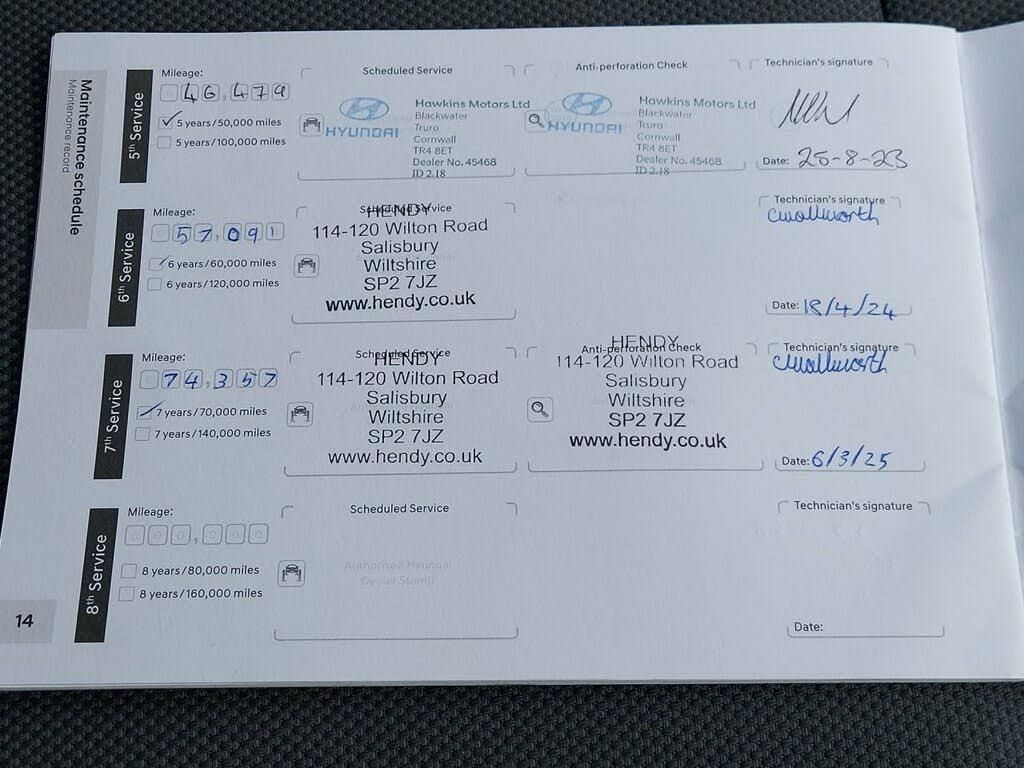 Maintenance schedule
Maintenance record
5th Service
Mileage:
46,479
5 years/50,000 miles
5 years/100,000 miles
Scheduled Service
HYUNDAI
Hawkins Motors Ltd
Blackwater
Truro
Cornwall
TR4 8ET
Dealer No. 45468
ID 2.18
Anti-perforation Check
HYUNDAI
Hawkins Motors Ltd
Blackwater
Truro
Cornwall
TR4 8ET
Dealer No. 45468
ID 2.18
Technician's signature
Date: 25-8-23
6th Service
Mileage:
57,091
6 years/60,000 miles
6 years/120,000 miles
Scheduled Service
HENDY
114-120 Wilton Road
Salisbury
Wiltshire
SP2 7JZ
www.hendy.co.uk
Technician's signature
Date: 18/4/24
7th Service
Mileage:
74,357
7 years/70,000 miles
7 years/140,000 miles
Scheduled Service
HENDY
114-120 Wilton Road
Salisbury
Wiltshire
SP2 7JZ
www.hendy.co.uk
HENDY
Anti-perforation Check
114-120 Wilton Road
Salisbury
Wiltshire
SP2 7JZ
www.hendy.co.uk
Technician's signature
Date: 6/3/25
8th Service
Mileage:
000,000
8 years/80,000 miles
8 years/160,000 miles
Scheduled Service
Authorised Hyundai
Dealer Stamp
Technician's signature
Date:
14